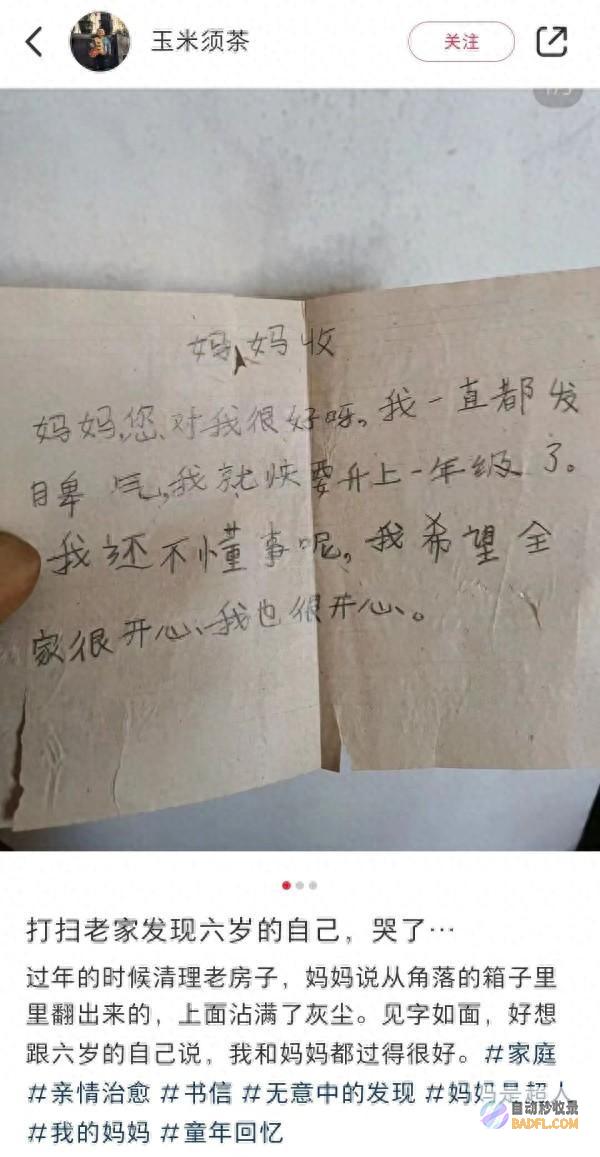 玉米须茶
关注
妈妈收
妈妈,您对我很好呀。我一直都发
脾气,我就快要升上一年级了。
我还不懂事呢,我希望全
家很开心、我也很开心、。
打扫老家发现六岁的自己，哭了…
过年的时候清理老房子，妈妈说从角落的箱子里
里翻出来的，上面沾满了灰尘。见字如面，好想
跟六岁的自己说，我和妈妈都过得很好。#家庭
#亲情治愈 #书信 #无意中的发现 #妈妈是超人
#我的妈妈 #童年回忆
自动秒收录
BADFL.COM